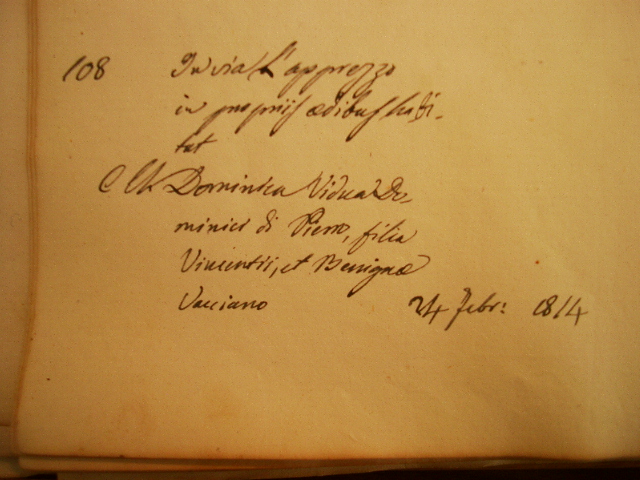 108 In via L'apprezzo
in propriis ædibus habi-
tat
C Ch Dominica Vidua Do-
minici di Pierro, filia
Vincentii, et Benignæ
Vacciano 24 Febr: 1814